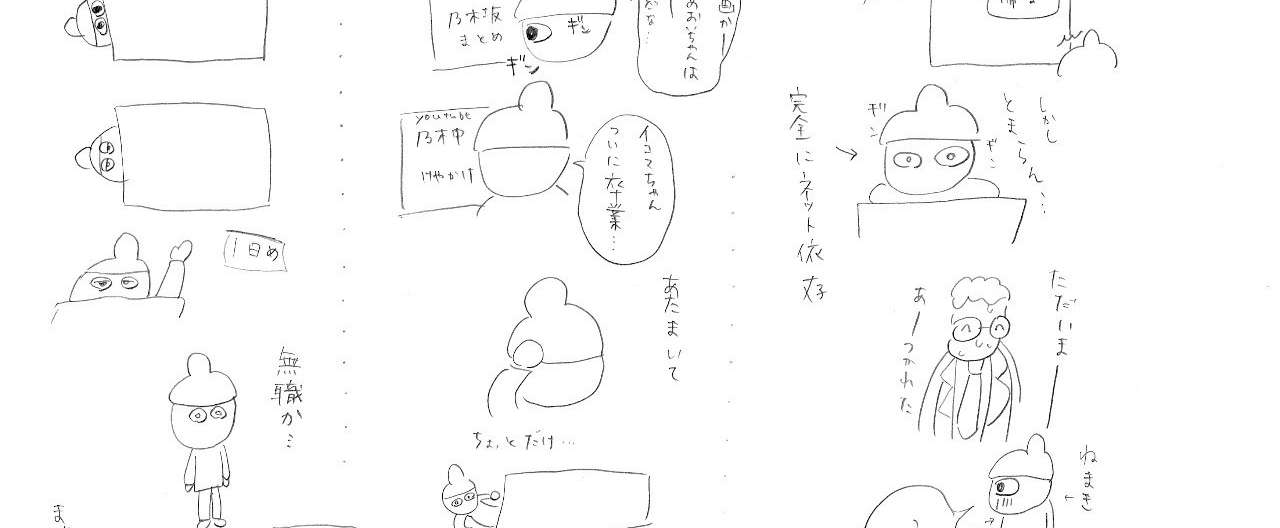 1日め
無職か…
乃木坂
まとめ
ギン
ギン
youtube
乃木中
けやかけ
イコマちゃん
ついに卒業…
あたまいて
ちょっとだけ…
しかし
とまらん…
ギン
ギン
完全にネット依存
ただいまー
あーつかれた
ねまき